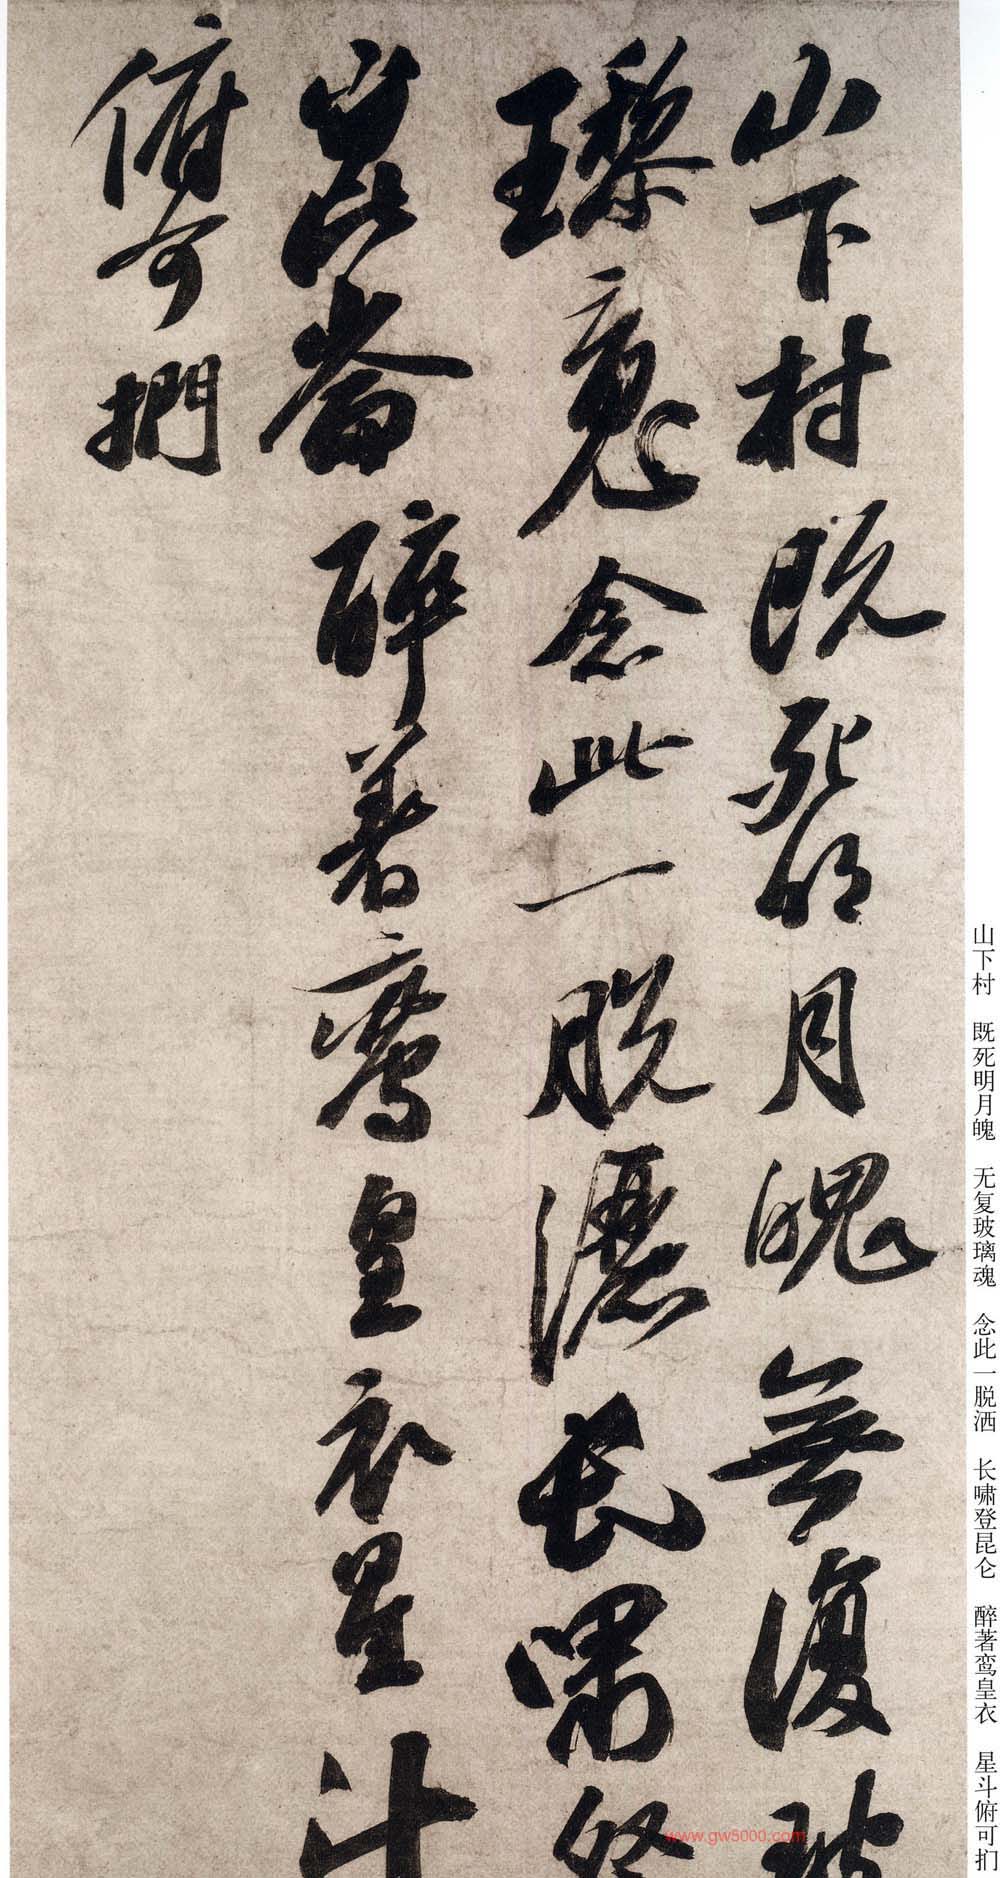 山下村既死明月魄無復玻
璃魂念此一脫灑長嘯登
崑崙醉著鸞皇衣星斗
俯可捫
山下村 既死明月魄 无复玻璃魂 念此一脱洒 长啸登昆仑 醉著鸾皇衣 星斗俯可扪
www.gw5000.com